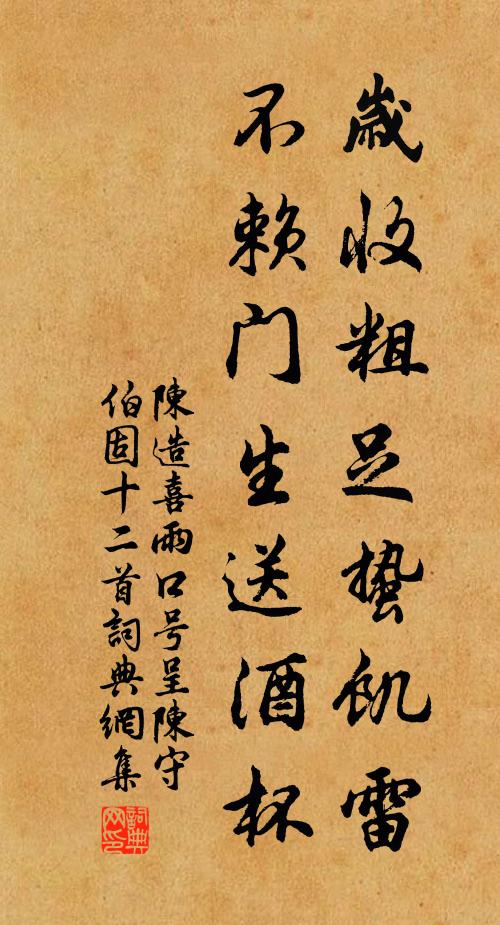 歲收粗足蟄飢雷
不賴门生送酒杯
陳造喜雨口号呈陳守
伯固十二首詞典網集
詞典网印